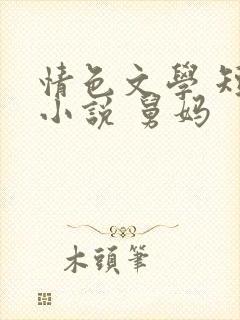 情色文學 短
小說 舅妈
木頭筆